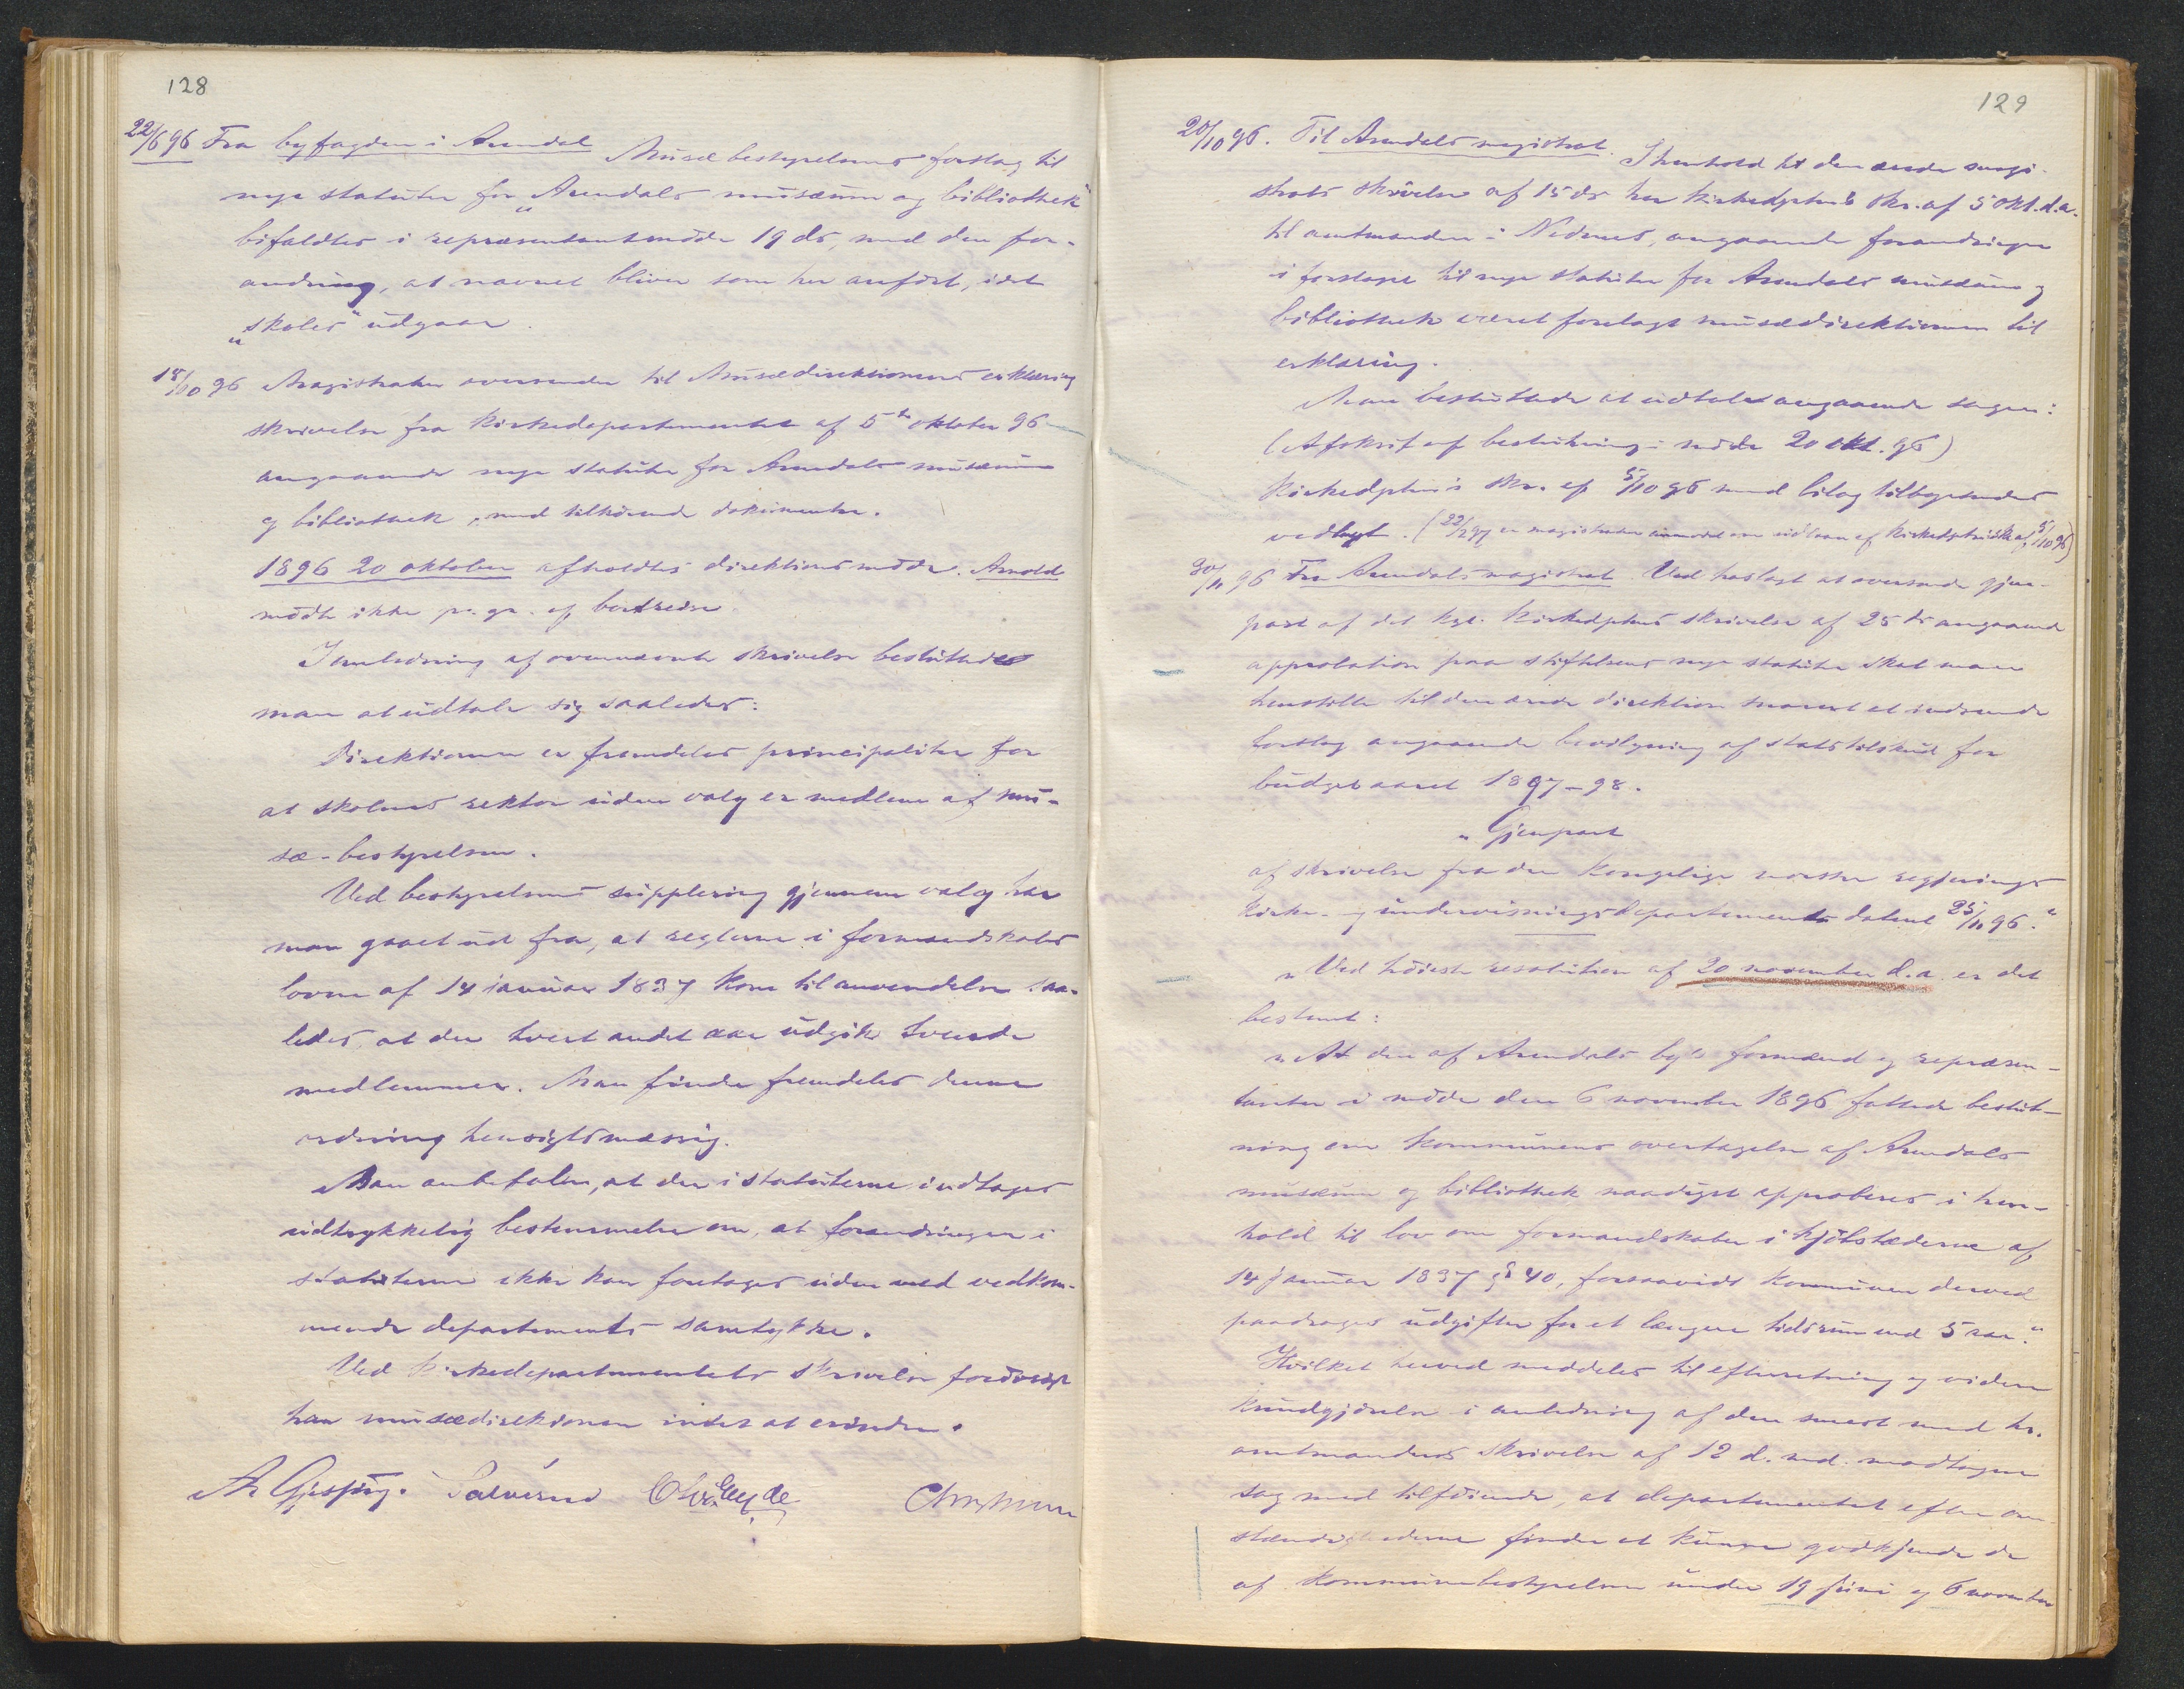 128
22/6 96 Fra byfogden i Arendal Musæbestyrelsens forslag til
nye statuter for „Arendals musæum og bibliothek"
bifaldtes i repræsentantmøde 19 ds, med den for-
andring, at navnet bliver som her anført, idet
„skoles" udgaar.
15/10 96 Magistraten oversender til Musædirektionens erklæring
skrivelse fra Kirkedepartementet af 5te oktober 96
angaaende nye statuter for Arendals musæum
og bibliothek, med tilhørende dokumenter.
1896 20 oktober afholdtes direktionsmøde. Arnold
mødte ikke pr. gr. af bortreise.
I anledning af ovennævnte skrivelse besluttedes
man at udtale sig saaledes:
Direktionen er fremdeles principaliter for
at skolens rektor uden valg er medlem af mu-
sæ-bestyrelsen.
Ved bestyrelsens supplering gjennem valg har
man gaaet ud fra, at reglerne i formandskabs
loven af 14 januar 1837 kom til anvendelse saa-
ledes, at der hvert andet aar udgik tvende
medlemmer. Man finder fremdeles denne
ordning hensigtsmæssig.
Man anbefaler, at der i statuterne indtages
udtrykkelig bestemmelse om, at forandringer i
statuterne ikke kan foretages uden med vedkom-
mende departements samtykke.
Ved Kirkedepartementets skrivelse forøvrigt
har musædirektionen intet at erindre.
A. Gjesping. Salvesen Eyde
129
20/10 96. Til Arendals magistrat. I henhold til den ærede magi-
strats skrivelse af 15 ds har Kirkedptets skr. af 5 okt. d.a.
til amtmanden i Nedenes, angaaende forandringer
i forslaget til nye statuter for Arendals musæum og
bibliothek været forelagt musædirektionen til
erklæring.
Man besluttede at udtale angaaende sagen:
(Afskrift af beslutning i møde 20 okt. 96)
Kirkedptets skr. af 5/10 96 med bilag tilbagesendes
vedlagt. (22/2 97 er magistraten anmodet om udlaan af Kirkedptets skr. af 5/10 96)
30/11 96 Fra Arendals magistrat. Ved hoslagt at oversende gjen-
part af det kgl. Kirkedptens skrivelse af 25 ds angaaende
approbation paa stiftelsens nye statuter skal man
henstille til den ærede direktion snarest at indsende
forslag angaaende bevilgning af statstilskud for
budgetaaret 1897–98.
„Gjenpart
af skrivelse fra den Kongelige norske regjerings
Kirke- og undervisningsdepartement dateret 25/11 96."
„Ved høieste resolution af 20 november d.a. er det
bestemt:
„At den af Arendals bys formænd og repræsen-
tanter i møde den 6 november 1896 fattede beslut-
ning om kommunens overtagelse af Arendals
musæum og bibliothek naadigst approberes i hen-
hold til lov om formandskaber i kjøbstæderne af
14 januar 1837 § 40, forsaavidt kommunen derved
paadrages udgifter for et længere tidsrum end 5 aar."
Hvilket herved meddeles til efterretning og videre
kundgjørelse i anledning af den senest med hr.
amtmandens skrivelse af 12 d. md. modtagne
sag med tilføiende, at departementet efter om-
stændighederne finder at kunne godkjende de
af kommunebestyrelsen under 19 juni og 6 november